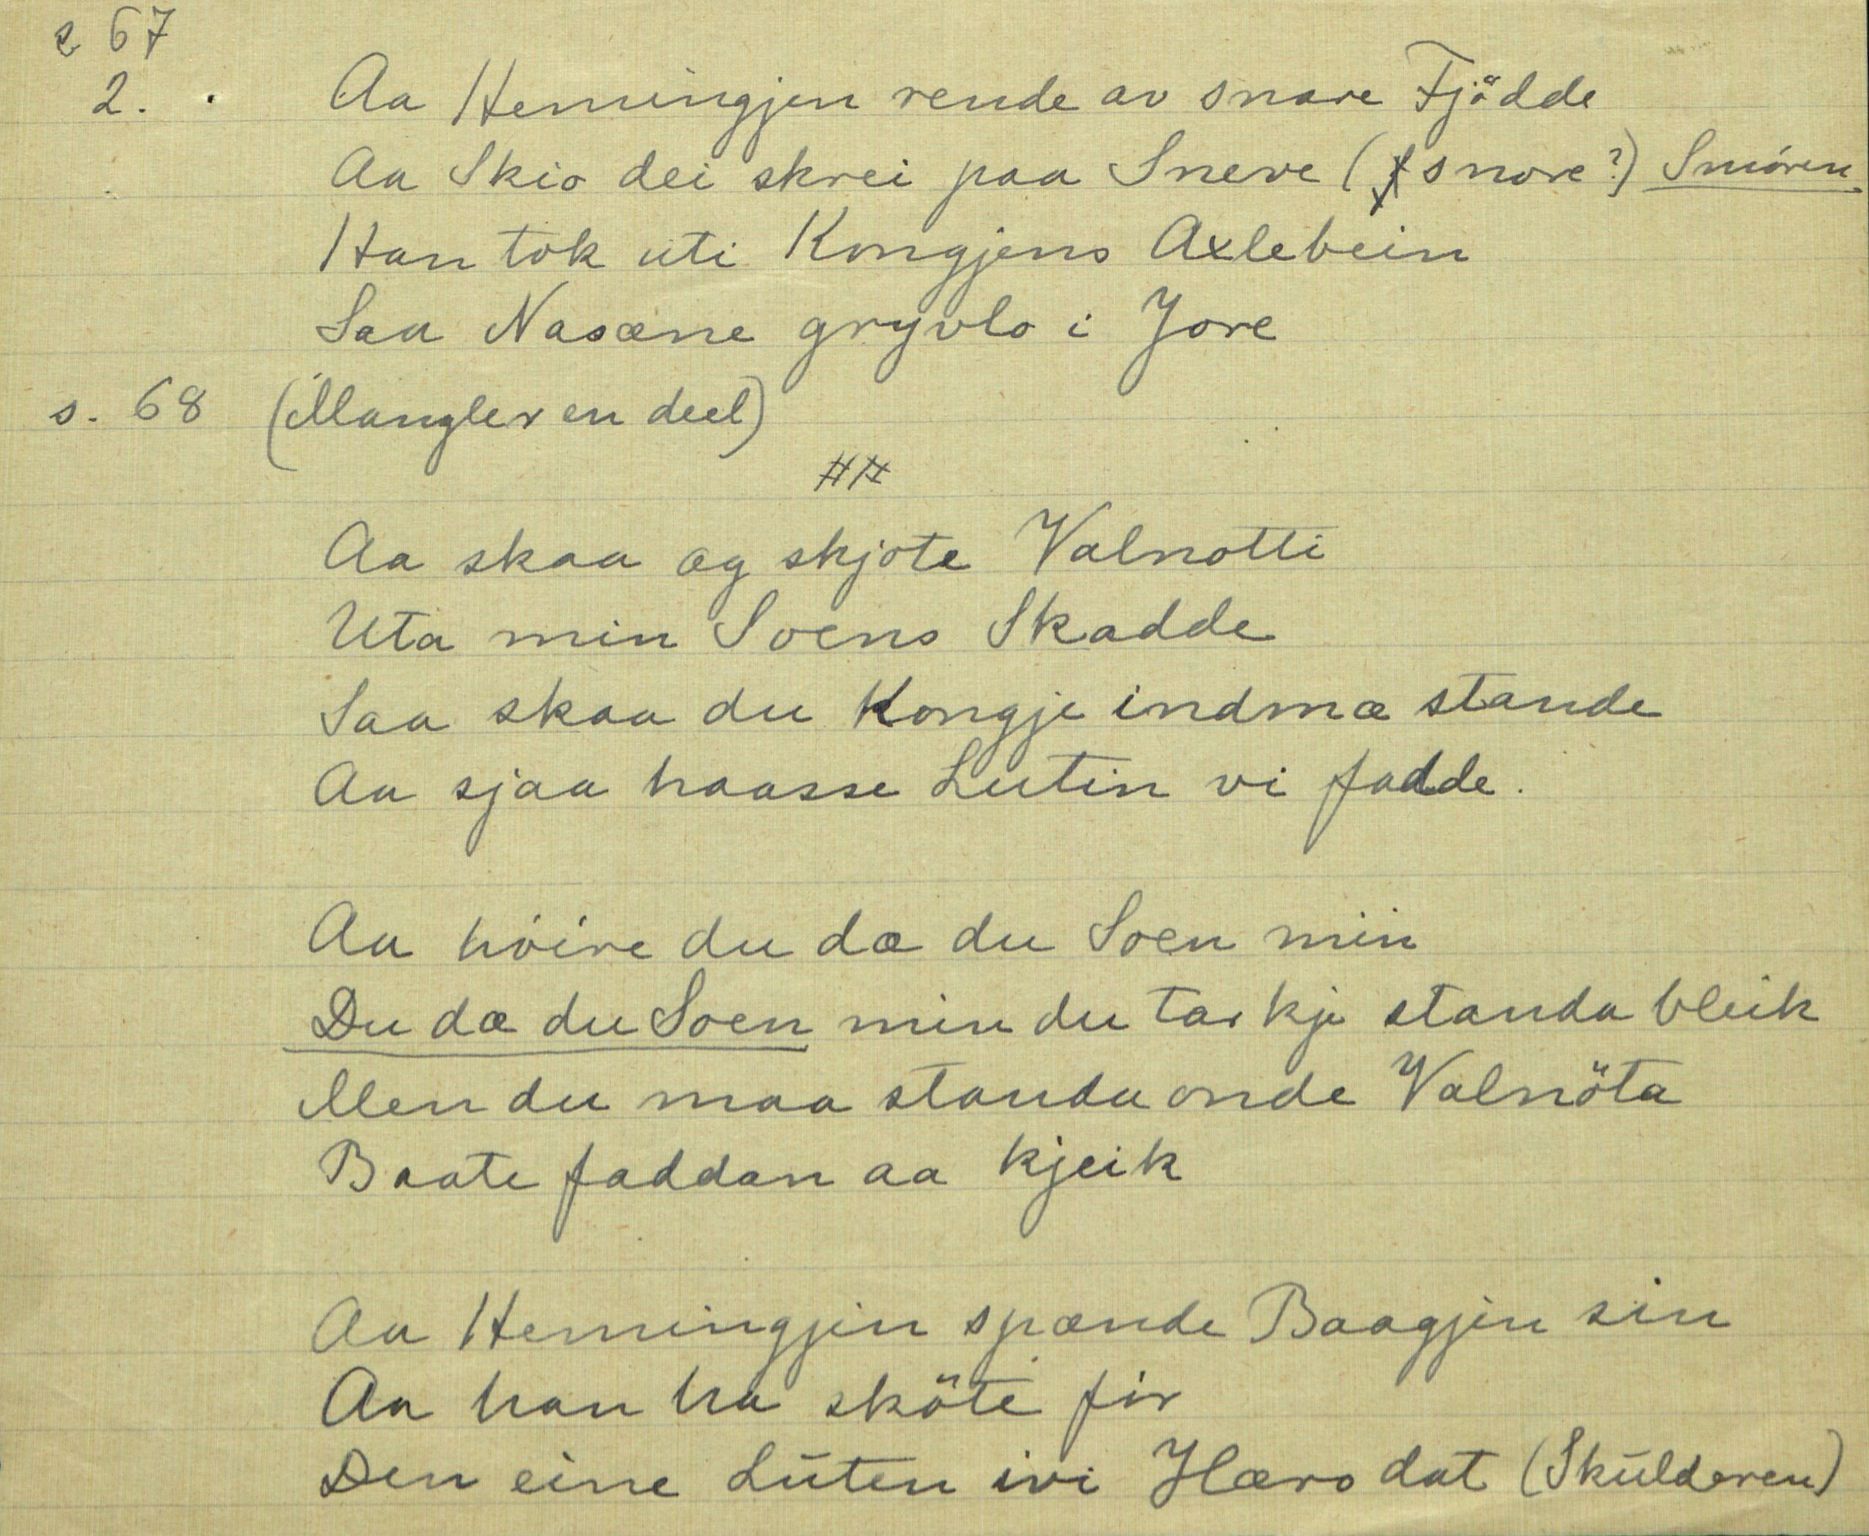 s 67
2. Aa Hemingjen rende av snare Fjödde
Aa Skio dei skrei paa Sneve ( snove ?) Snióren
Han tok uti Kongjens Axlebein
Saa Nasæne gryvlo i Jore
s. 68 (Mangler en deel)
##
Aa skaa æg skjote Valnotti
Uta min Soens Skadde
Saa skaa du Kongje indmæ stande
Aa sjaa haasse Lutin vi fadde.
Aa höire du dæ du Soen min
Du dæ du Soen min du tar kje standa bleik
Men du maa standa onde Valnöta
Baate faddan aa kjeik
Aa Hemingjin spænde Baagjin sin
Aa han ha sköte fir
Den eine Lúten ivi Hæro dat (Skúlderen)